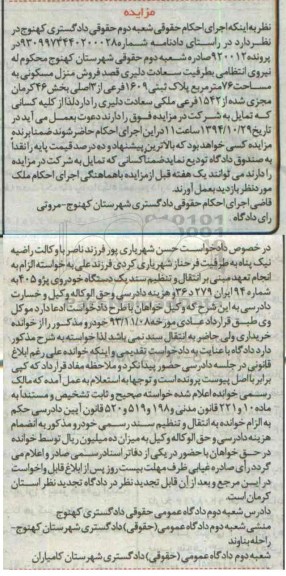 مزایده
نظر به اینکه اجرای احکام حقوقی شعبه دوم حقوقی دادگستری کهنوج در
نظر دارد در راستای دادنامه شماره ۹۳۰۹۹۷۳۴۴۰۲۰۰۰۲۸ در
پرونده ۹۲۰۰۱۲ صادره شعبه دوم حقوقی شهرستان کهنوج محکوم له
نیروی انتظامی بطرفیت سعادت دلیری قصد فروش منزل مسکونی به
مساحت ۷۶ مترمربع پلاک ثبتی ۱۶۰۹ فرعی از ۳ اصلی بخش ۴۶ کرمان
مجزی شده از ۱۵۴۲ فرعی ملکی سعادت دلیری را دارد لذا از کلیه کسانی
که تمایل به شرکت در مزایده فوق را دارند دعوت بعمل می آید در
تاریخ ۱۳۹۴/۱۰/۲۹ ساعت ۱۱ در این اجرای احکام حاضر شوند ضمنا برنده
مزایده کسی خواهد بود که بالاترین پیشنهاد و ده درصد قیمت پایه را نقدا
به صندوق دادگاه تودیع نماید ضمنا کسانی که تمایل به شرکت در مزایده
را دارند می توانند یک هفته قبل از مزایده با هماهنگی اجرای احکام ملک
مورد نظر بازدید بعمل آورند
قاضی اجرای احکام حقوقی دادگستری شهرستان کهنوج - مروتی
رای دادگاه
در خصوص دادخواست حسن شهریاری پور فرزند ناصر با وکالت راضیه
نیک پناه به طرفیت فرحناز شهریاری کردی فرزند علی به خواسته الزام به
انجام تعهد مبنی بر انتقال و تنظیم سند یک دستگاه خودروی پژو ۴۰۵ به
شماره ۹۴ ایران ۲۷۹ د ۳۶ و هزینه دادرسی و حق الوکاله وکیل و خسارت
دادرسی به این شرح که وکیل خواهان با طرح دادخواست ادعا دارد موکل
وی طبق قرارداد عادی مورخه ۹۳/۱۱/۰۸ خودرو مذکور را از خوانده
خریداری ولی حاضر به انتقال سند نمی باشد لذا خواسته به شرح مذکور
دارد دادگاه با عنایت به دادخواست تقدیمی و اینکه خوانده علی رغم ابلاغ
قانونی در جلسه دادرسی حضور پیدا نکرد و ملاحظه مفاد قرارداد که کپی
برابر با اصل پیوست پرونده است و توجها به استعلام به عمل آمده که مالک
رسمی خوانده اعلام شده خواسته صحیح و ثابت تشخیص و مستندا به
ماده ۱۰ و ۲۲۱ قانون مدنی و ۱۹۸ و ۵۱۹ و ۵۲۰ قانون آیین دادرسی حکم
به الزام خوانده به انتقال و تنظیم سند رسمی خودرو مذکور به انضمام
هزینه دادرسی و حق الوکاله وکیل به میزان ده میلیون ریال توسط خوانده
در حق خواهان با حضور در یکی از دفاتر اسناد رسمی صادر و اعلام می
گردد رأی صادره غیابی ظرف مهلت بیست روز پس از ابلاغ قابل واخواست
در این مرجع و بعد از آن قابل تجدید نظر در دادگاه تجدید نظر استان
کرمان است.
دادرس شعبه دوم دادگاه عمومی حقوقی دادگستری کهنوج
منشی شعبه دوم دادگاه عمومی (حقوقی) دادگستری شهرستان کهنوج -
راحله بناوند
شعبه دوم دادگاه عمومی (حقوقی) دادگستری شهرستان کامیاران